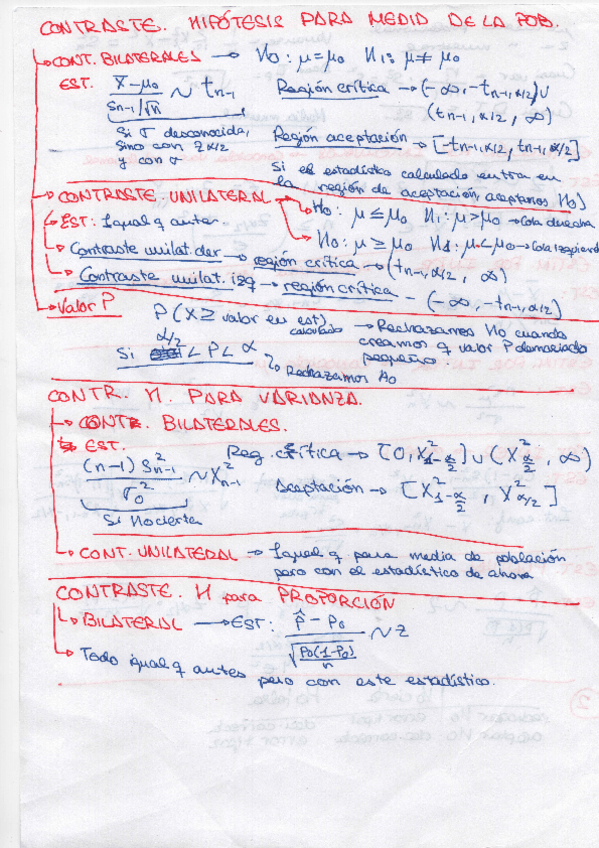 CONTRASTE. HIPÓTESIS PARA MEDIA DE LA POB.
CONT. BILATERALES → H0: μ=μ0 H1: μ≠μ0
EST. (x̄-μ0)/(Sn-1/√n) ~ tn-1
Región crítica → (-∞, -tn-1,α/2)∪
(tn-1,α/2, ∞)
Si σ desconocida,
sino con Zα/2
y con σ
Región aceptación → [-tn-1,α/2, tn-1,α/2]
Si el estadístico calculado entra en
la región de aceptación, aceptamos H0)
CONTRASTE UNILATERAL
H0: μ≤μ0 H1: μ>μ0 → Cola derecha
EST: Igual q antes.
H0: μ≥μ0 H1: μ<μ0 → Cola izquierda
Contraste unilat. der → región crítica → (tn-1,α/2, ∞)
Contraste unilat. izq → región crítica - (-∞, -tn-1,α/2)
Valor P
P(X≥ valor en est)
calculado
→ Rechazamos H0 cuando
creamos q valor P demasiado
pequeño
Si α/2 < P < α
Rechazamos H0
CONTR. H. PARA VARIANZA.
CONTR. BILATERALES.
EST.
(n-1) S²n-1 / σ0² ~ X²n-1
Reg. crítica → [0, X²1-α/2]∪(X²α/2, ∞)
Aceptación → [X²1-α/2, X²α/2]
Si H0 cierta
CONT. UNILATERAL → Igual q para media de población
pero con el estadístico de ahora
CONTRASTE. H para PROPORCIÓN
BILATERAL → EST: (p̂ - p0)/√(p0(1-p0)/n) ~ Z
Todo igual q antes pero con este estadístico.